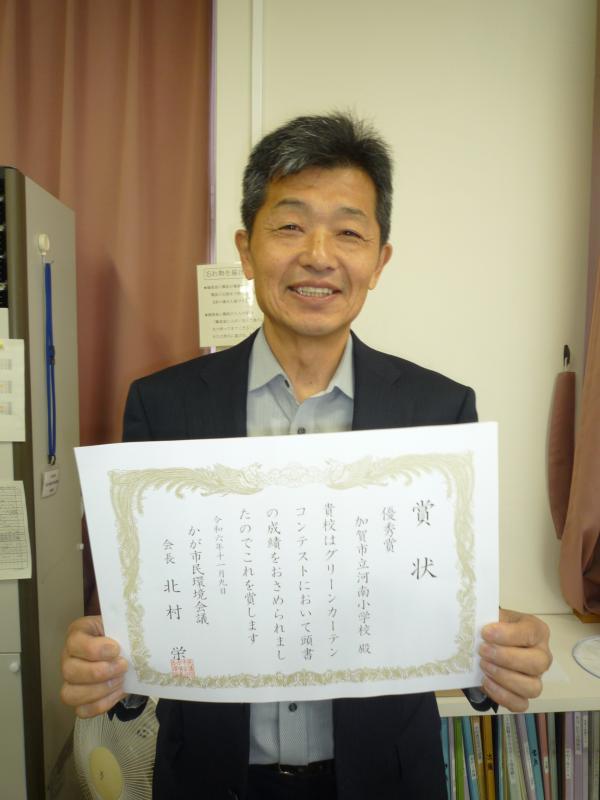 賞状
優秀賞
加賀市立河南小学校 殿
貴校はグリーンカーテン
コンテストにおいて頭書
の成績をおさめられまし
たのでこれを賞します
令和六年十一月九日
かが市民環境会議
会長 北村 栄